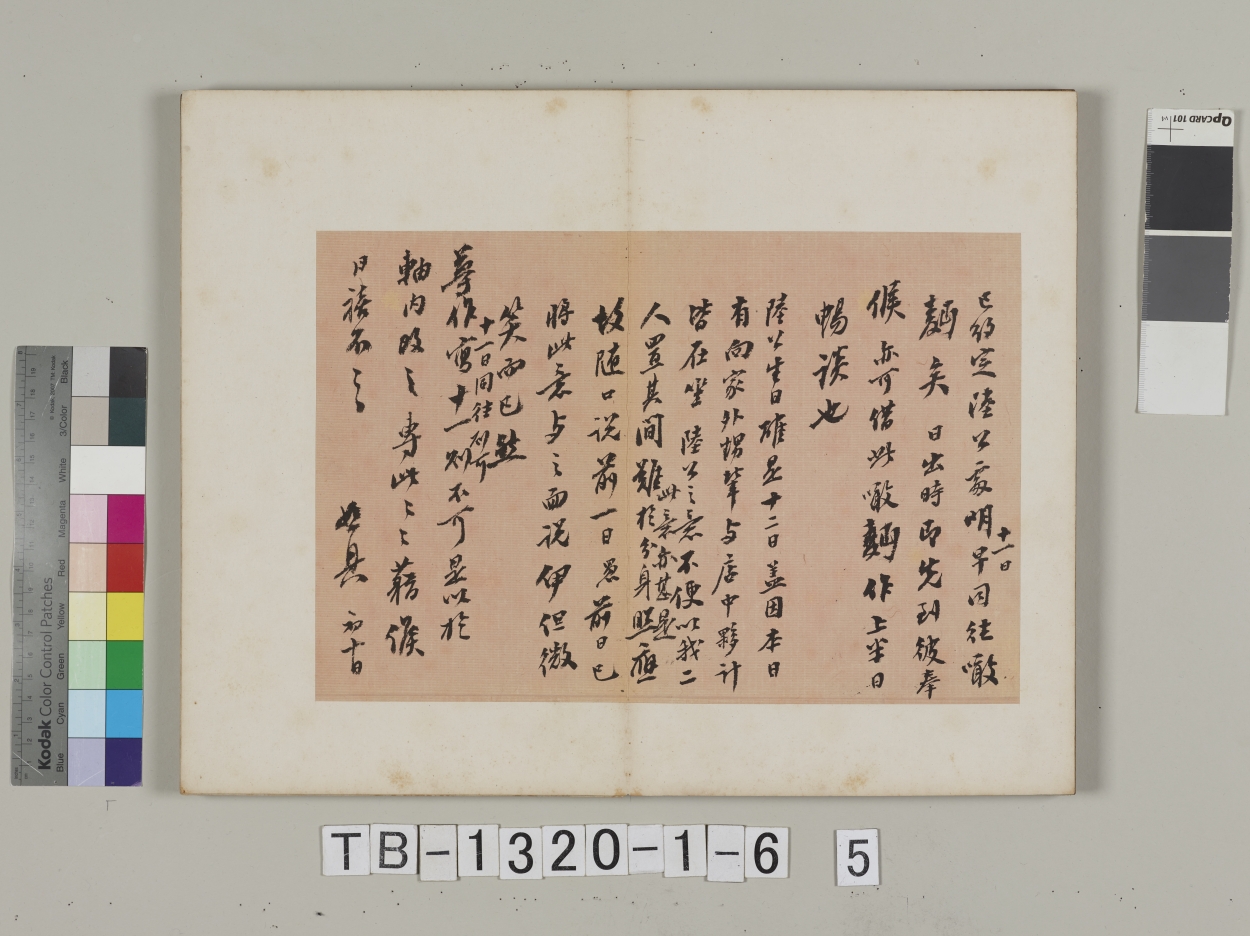 已約定陸公處明早同往噉
十一日
麪矣 日出時即先到彼奉
候 亦可借此噉麪作上半日
暢談也
陸公生日雖是十二日蓋因本日
有向家外甥輩与店中夥計
皆在坐 陸公之意不便以我二
人置其間難於分身照應
此意亦甚是
故隨口说前一日 愚前日已
將此意与之面说伊但微
笑而已 然
十一日同往則可
摹作寫十一則不可是以於
軸内改之 專此 藉候
日禧不一
具 初十日
Kodak Color Control Patches
© Kodak, 2007 TM: Kodak
Blue
Cyan
Green
Yellow
Red
Magenta
White
3/Color
Black
QPCARD 101
TB-1320-1-6 5